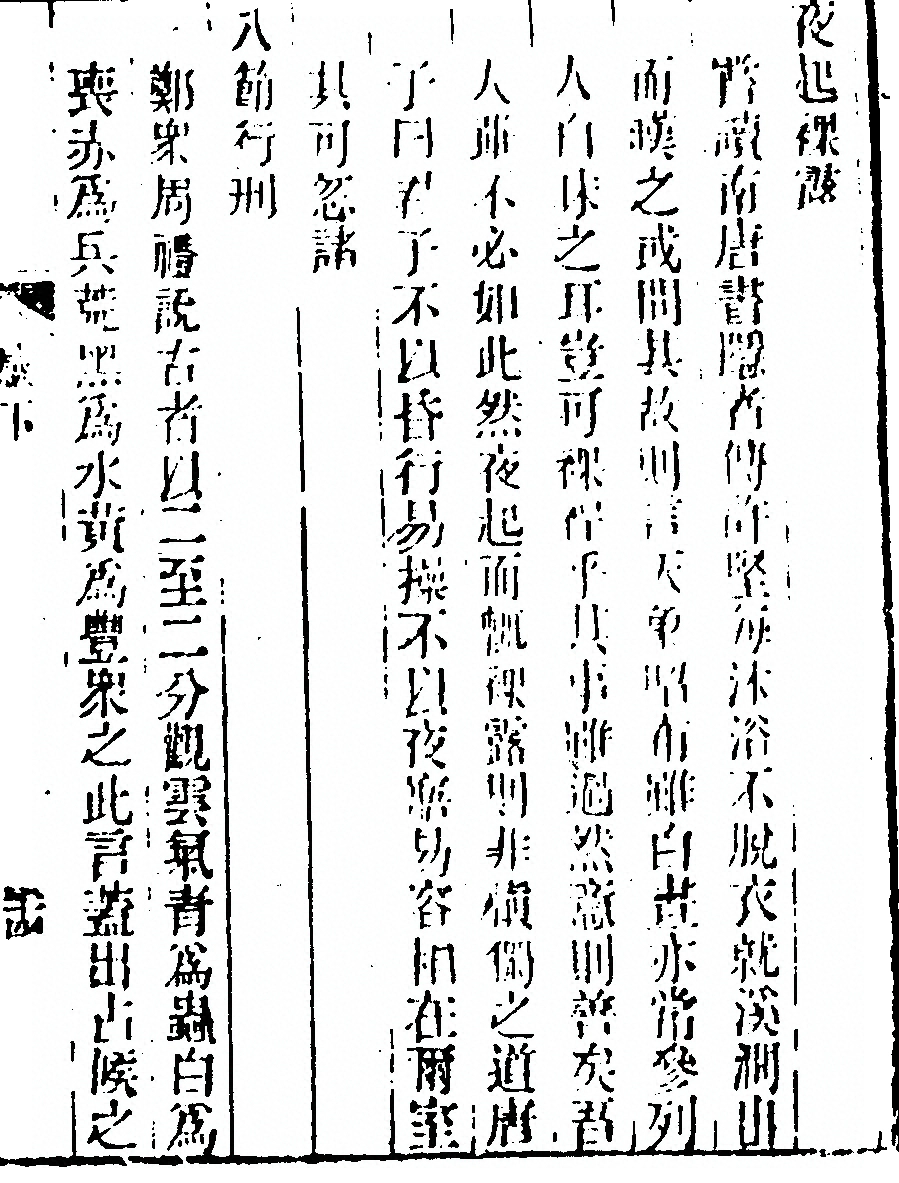 夜起裸露
嘗讀南唐書隱者傳許堅毎沐浴不脫衣就溪澗出
而暵之或問其故則言天象昭布雖白晝亦常參列
人自昧之耳豈可裸裎乎其事雖過然意則善矣吾
人雖不必如此然夜起而輒裸露則非慎獨之道唐
子曰君子不以昏行易操不以夜寐易容相在爾室
其可忽諸
八節行刑
鄭衆周禮說古者以二至二分觀雲氣青爲蟲白爲
喪赤爲兵荒黑爲水黃爲豐衆之此言蓋出占候之
下